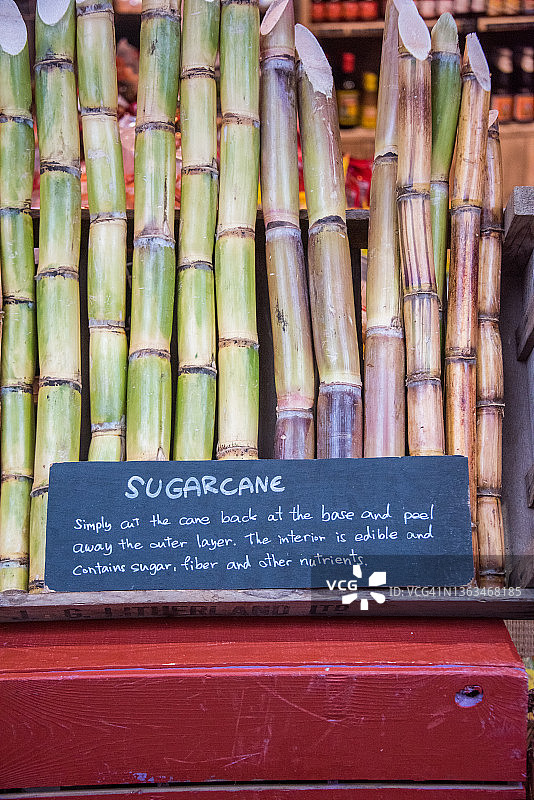 SUGARCANE
Simply cut the cane back at the base and peel
away the outer layer. The interior is edible and
contains sugar, fiber and other nutrients.
VCG VCG41N1363468185
LITHERLAND LTD